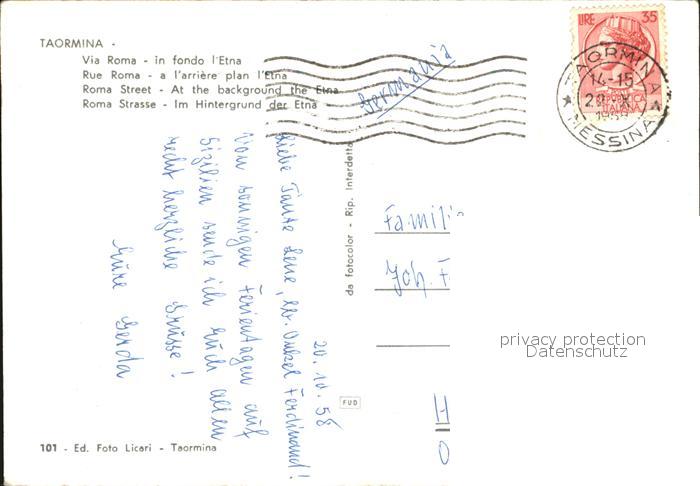 TAORMINA -
Via Roma - in fondo l'Etna
Rue Roma - a l'arrière plan l'Etna
Roma Street - At the background the Etna
Roma Strasse - Im Hintergrund der Etna
Germania
LIRE 35
REPUBBLICA
ITALIANA
TAORMINA
14-15
MESSINA
da fotocolor - Rip. Interdetta
20.10.58
Liebe Tante Lene, lb. Onkel Ferdinand!
Von sonnigen Ferientagen auf
Sizilien sende ich Euch allen
recht herzliche Grüsse!
Eure Gerda
Famili
Joh. F
H
O
privacy protection
Datenschutz
FUD
101 - Ed. Foto Licari - Taormina